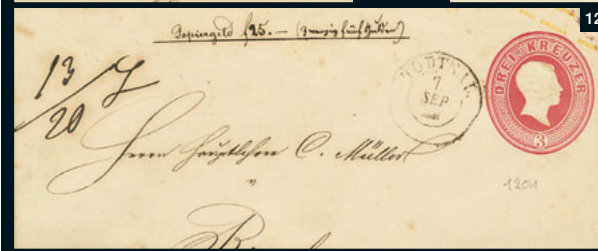 Papiergeld f 25.— (Zwanzig fünf Gulden)
12
13/7
20
RODTHAL
7.
SEP
DREI KREUZER
3
Herrn Hauptlehrer C. Müller
"
1201